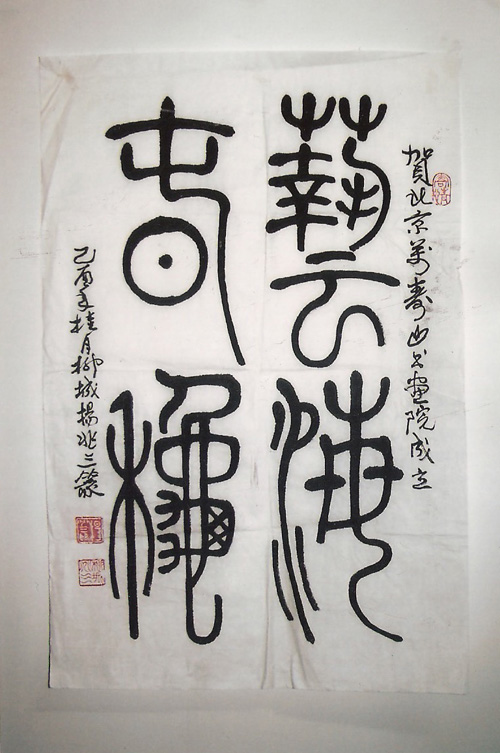 賀北京萬壽山书畫院成立
藝海
春龝
己酉年桂月柳城楊兆三篆